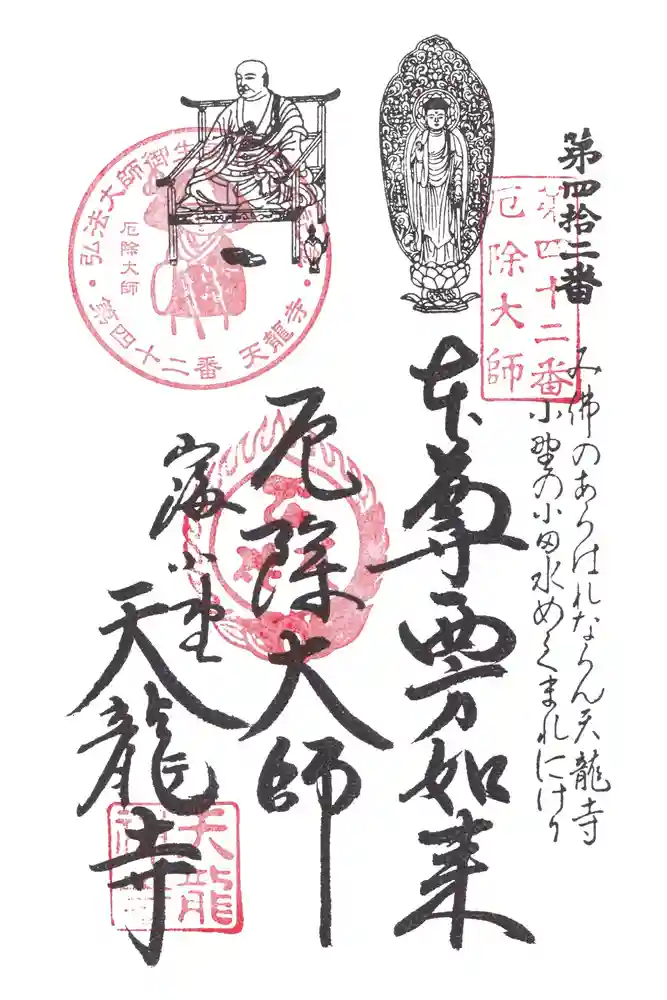 第四拾二番
第四十二番
厄除大師
み佛のあらはれならん天龍寺
小野の小田水めくまれにけり
本尊西方如来
厄除大師
天龍寺
弘法大師御生
厄除大師
第四十二番 天龍寺
天龍